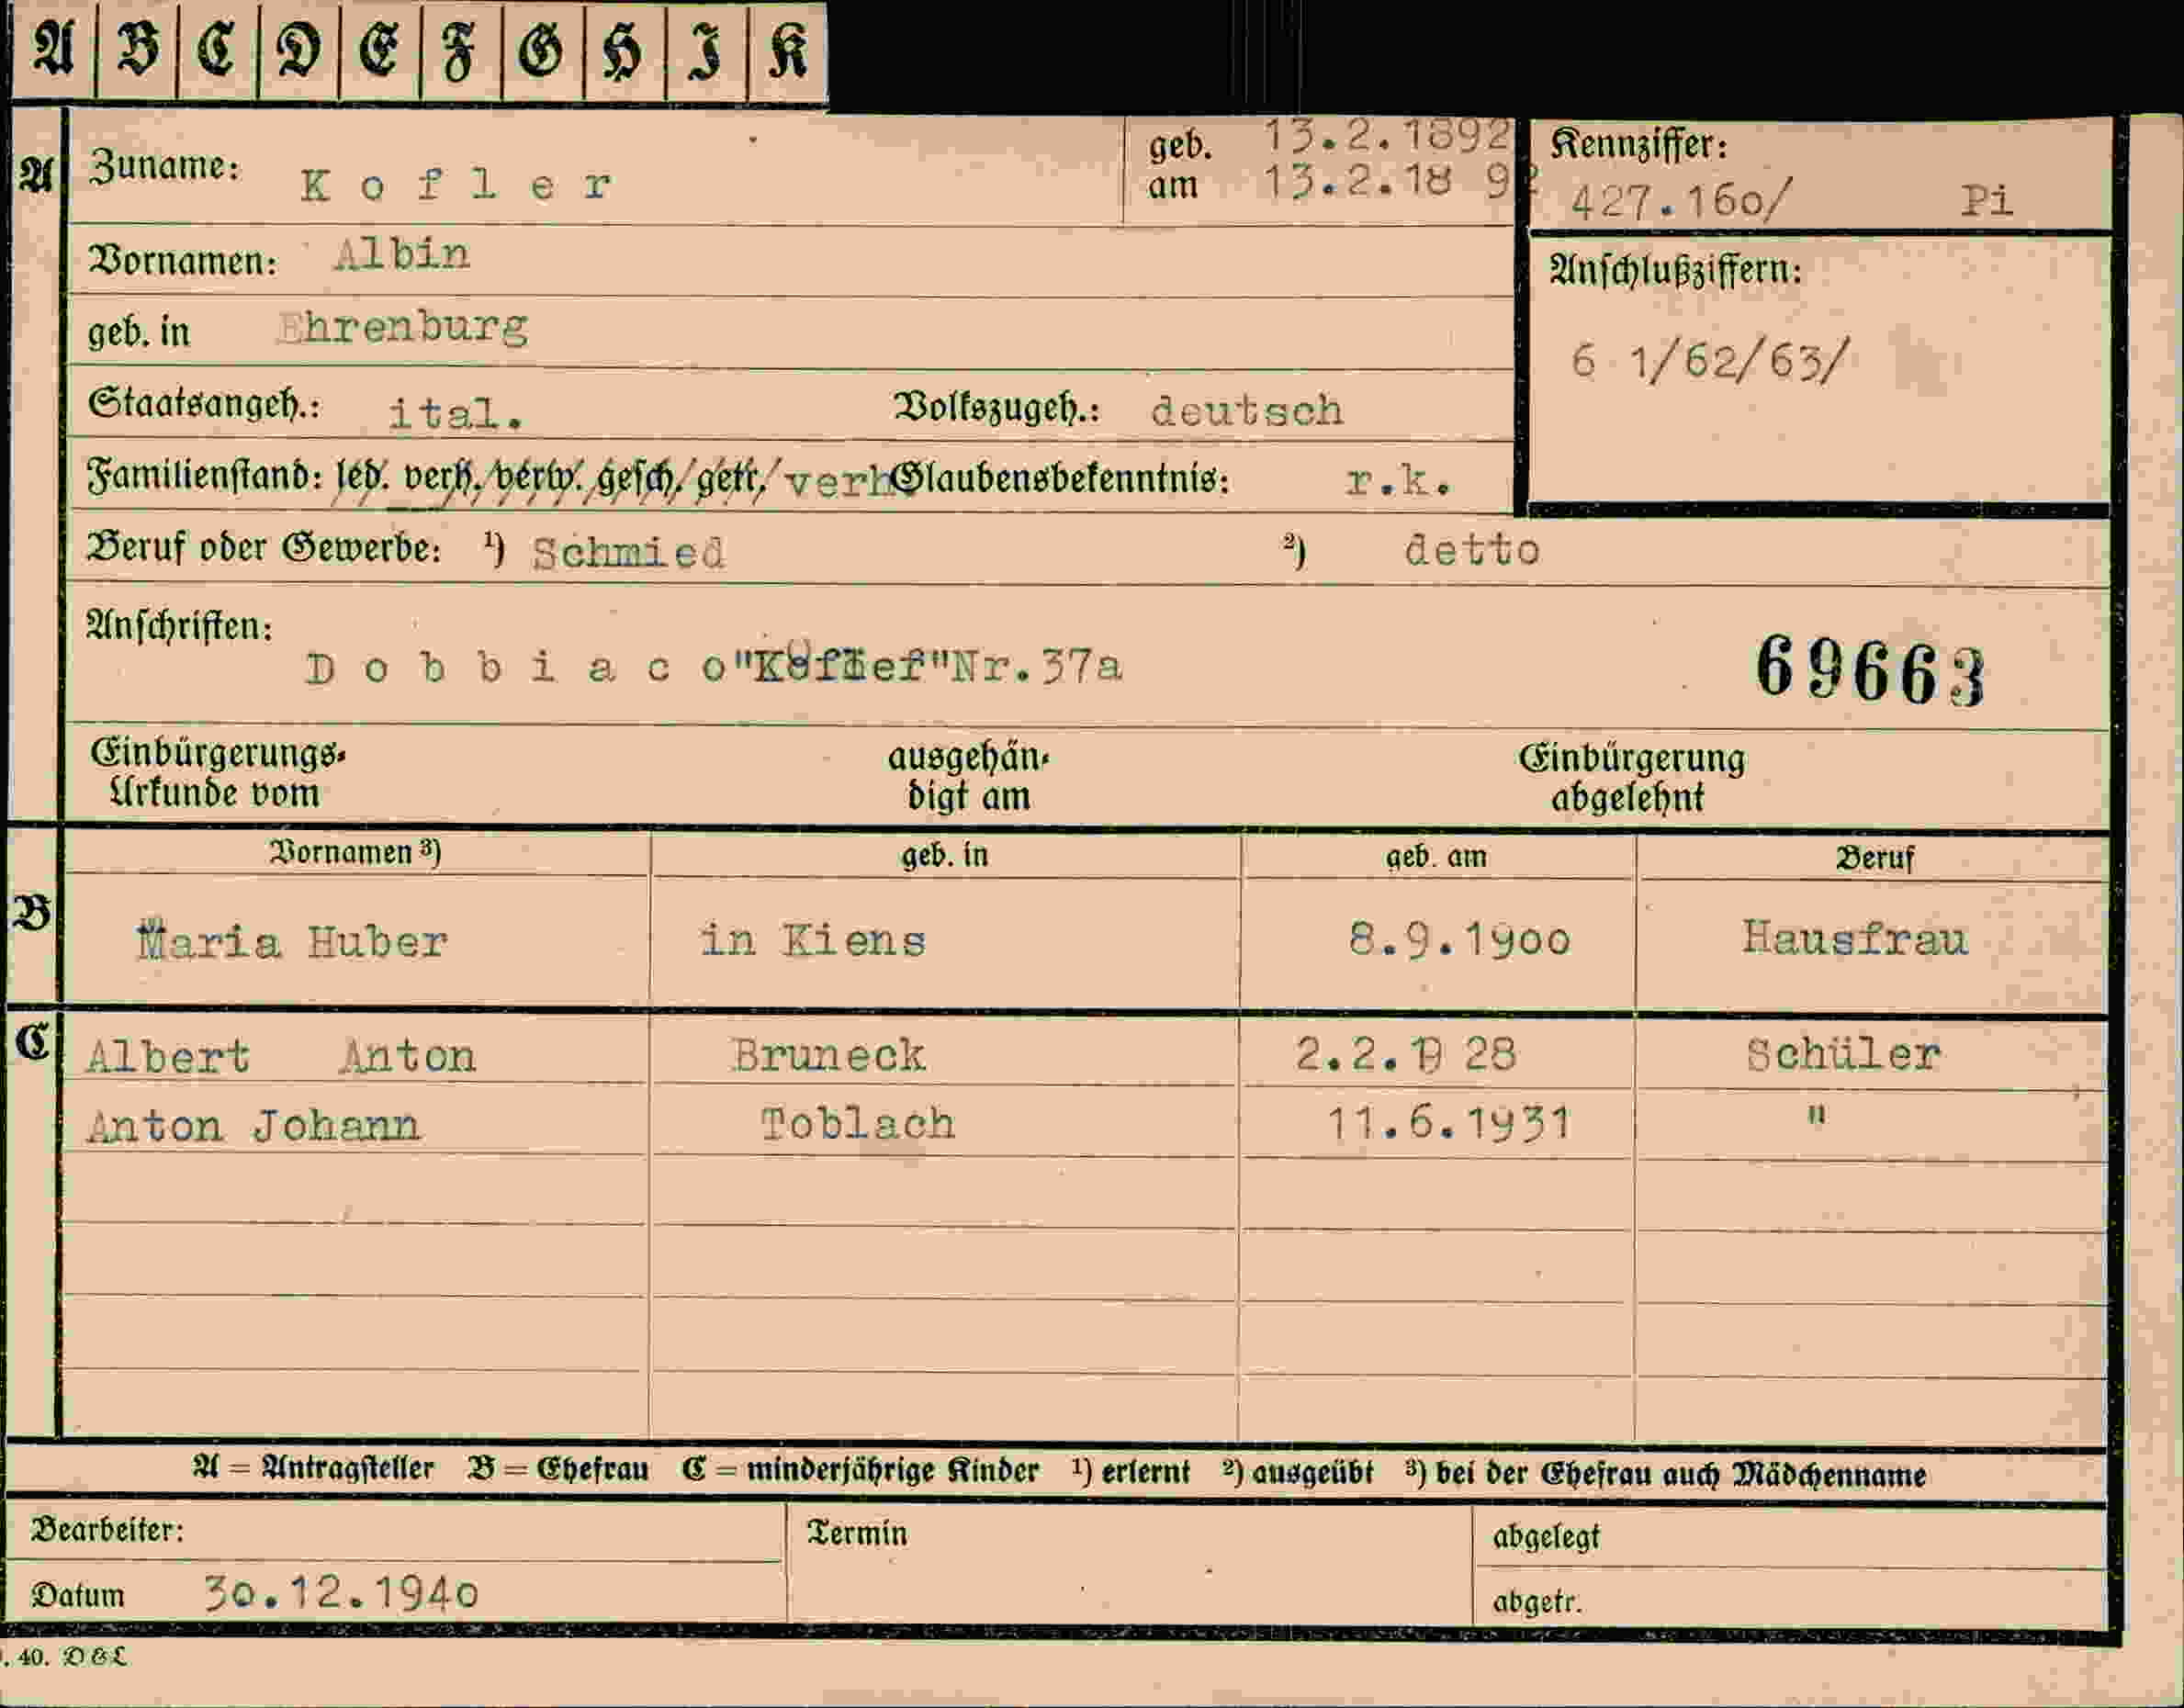 A B C D E F G H I K
A Zuname: Kofler geb. am 13.2.1892 13.2.18 92 Kennziffer: 427.160/ Pi
Vornamen: Albin Anschlußziffern:
geb. in Ehrenburg 6 1/62/63/
Staatsangeh.: ital. Volkszugeh.: deutsch
Familienstand: led. verh. verw. gesch. getr. verh Glaubensbekenntnis: r.k.
Beruf oder Gewerbe: ¹) Schmied ²) detto
Anschriften:
Dobbiaco Nr.37a 69663
Einbürgerungs- ausgehän- Einbürgerung
Urkunde vom digt am abgelehnt
Vornamen ³) geb. in geb. am Beruf
B Maria Huber in Kiens 8.9.1900 Hausfrau
C Albert Anton Bruneck 2.2.19 28 Schüler
Anton Johann Toblach 11.6.1931 "
A = Antragsteller B = Ehefrau C = minderjährige Kinder ¹) erlernt ²) ausgeübt ³) bei der Ehefrau auch Mädchenname
Bearbeiter: Termin abgelegt
Datum 30.12.1940 abgetr.
. 40. D&L